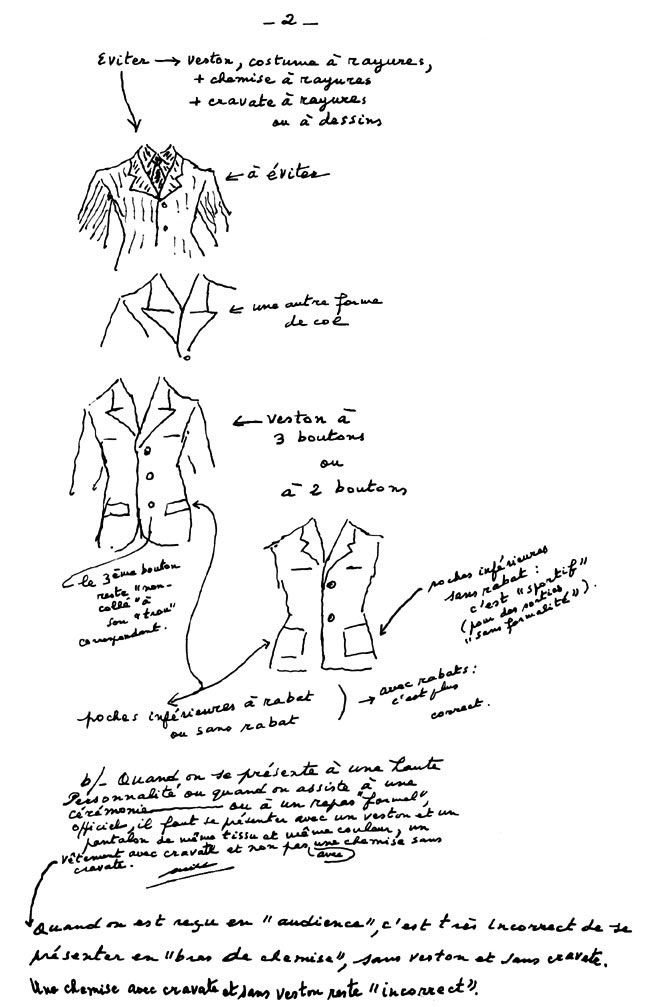 — 2 —
Eviter → veston, costume à rayures,
+ chemise à rayures
+ cravate à rayures
ou à dessins
← à éviter
← une autre forme
de col
← veston à
3 boutons
ou
à 2 boutons
le 3ème bouton
reste "non-
collé" à
son "trou"
correspondant.
poches inférieures
sans rabat :
c'est "sportif"
(pour des sorties
"sans formalité").
poches inférieures à rabat
ou sans rabat
) → avec rabats :
c'est plus
correct.
b/- Quand on se présente à une haute
Personnalité ou quand on assiste à une
cérémonie ou à un repas "formel",
officiel, il faut se présenter avec un veston et un
pantalon de même tissu et même couleur, un
vêtement avec cravate et non pas une chemise sans
cravate.
avec
Quand on est reçu en "audience", c'est très incorrect de se
présenter en "bras de chemise", sans veston et sans cravate.
Une chemise avec cravate et sans veston reste "incorrect".